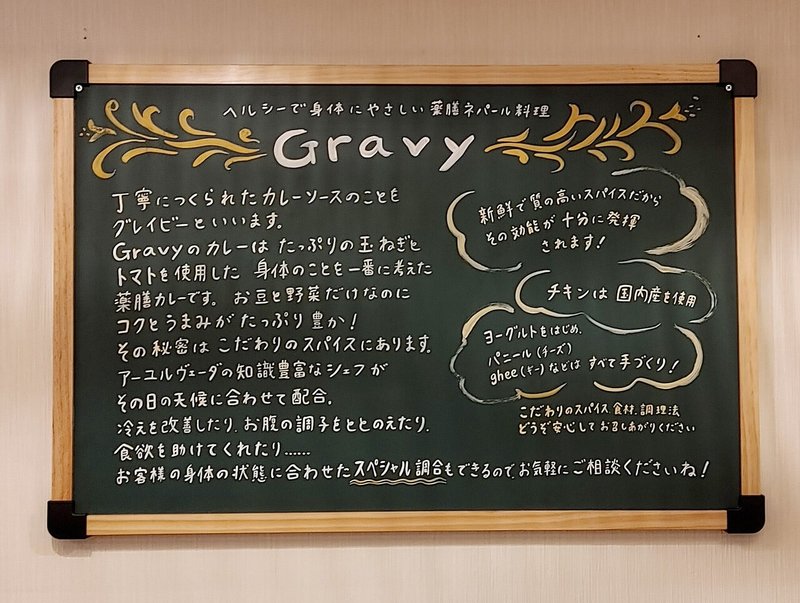 ヘルシーで身体にやさしい薬膳ネパール料理
Gravy
丁寧につくられたカレーソースのことを
グレイビーといいます。
Gravyのカレーは たっぷりの玉ねぎと
トマトを使用した 身体のことを一番に考えた
薬膳カレーです。 お豆と野菜だけなのに
コクとうまみが たっぷり豊か！
その秘密は こだわりのスパイスにあります。
アーユルヴェーダの知識豊富なシェフが
その日の天候に合わせて配合。
冷えを改善したり、お腹の調子をととのえたり、
食欲を助けてくれたり……
お客様の身体の状態に合わせたスペシャル調合もできるので、お気軽にご相談くださいね！
新鮮で質の高いスパイスだから
その効能が 十分に発揮
されます！
チキンは 国内産を使用
ヨーグルトをはじめ、
パニール(チーズ)
ghee(ギー)などは すべて手づくり！
こだわりのスパイス、食材、調理法
どうぞ安心して お召しあがりください